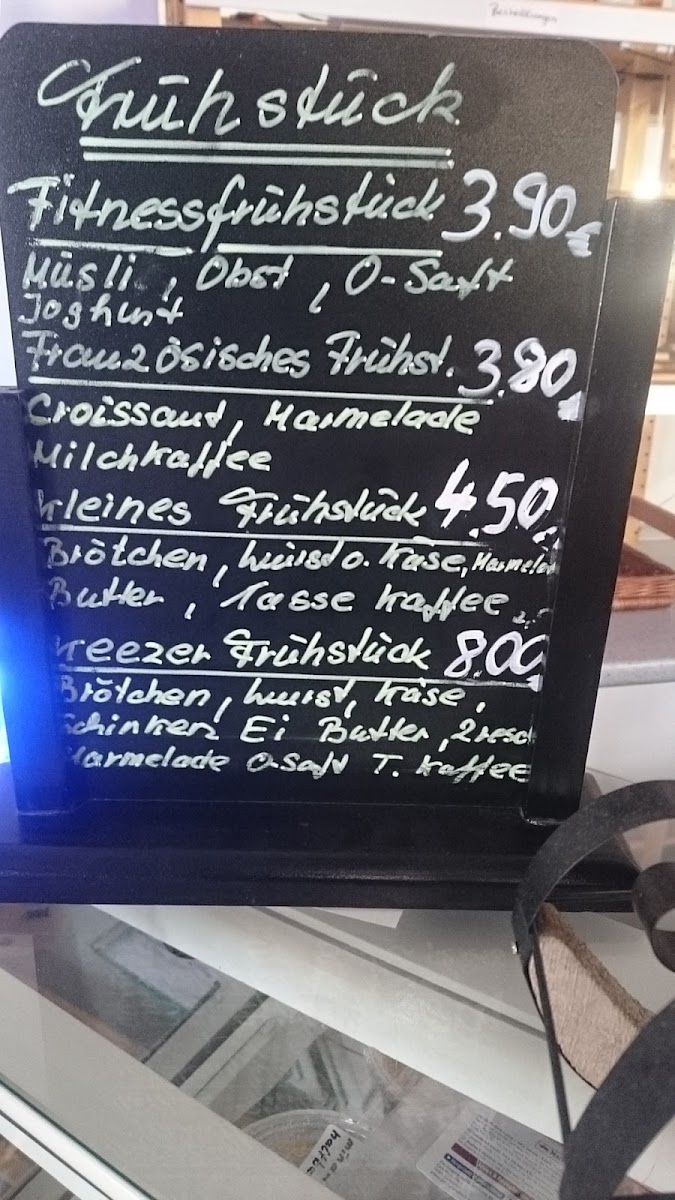 Bestellungen
Frühstück
Fitnessfrühstück 3.90 €
Müsli, Obst, O-Saft
Joghurt
Französisches Frühst. 3.80
Croissant, Marmelade
Milchkaffee
kleines Frühstück 4.50
Brötchen, Wurst o. Käse, Marmelad
Butter, Tasse Kaffee
reezer Frühstück 8.00
Brötchen, Wurst, Käse,
Schinken Ei Butter, 2
Marmelade O-Saft T. Kaffee